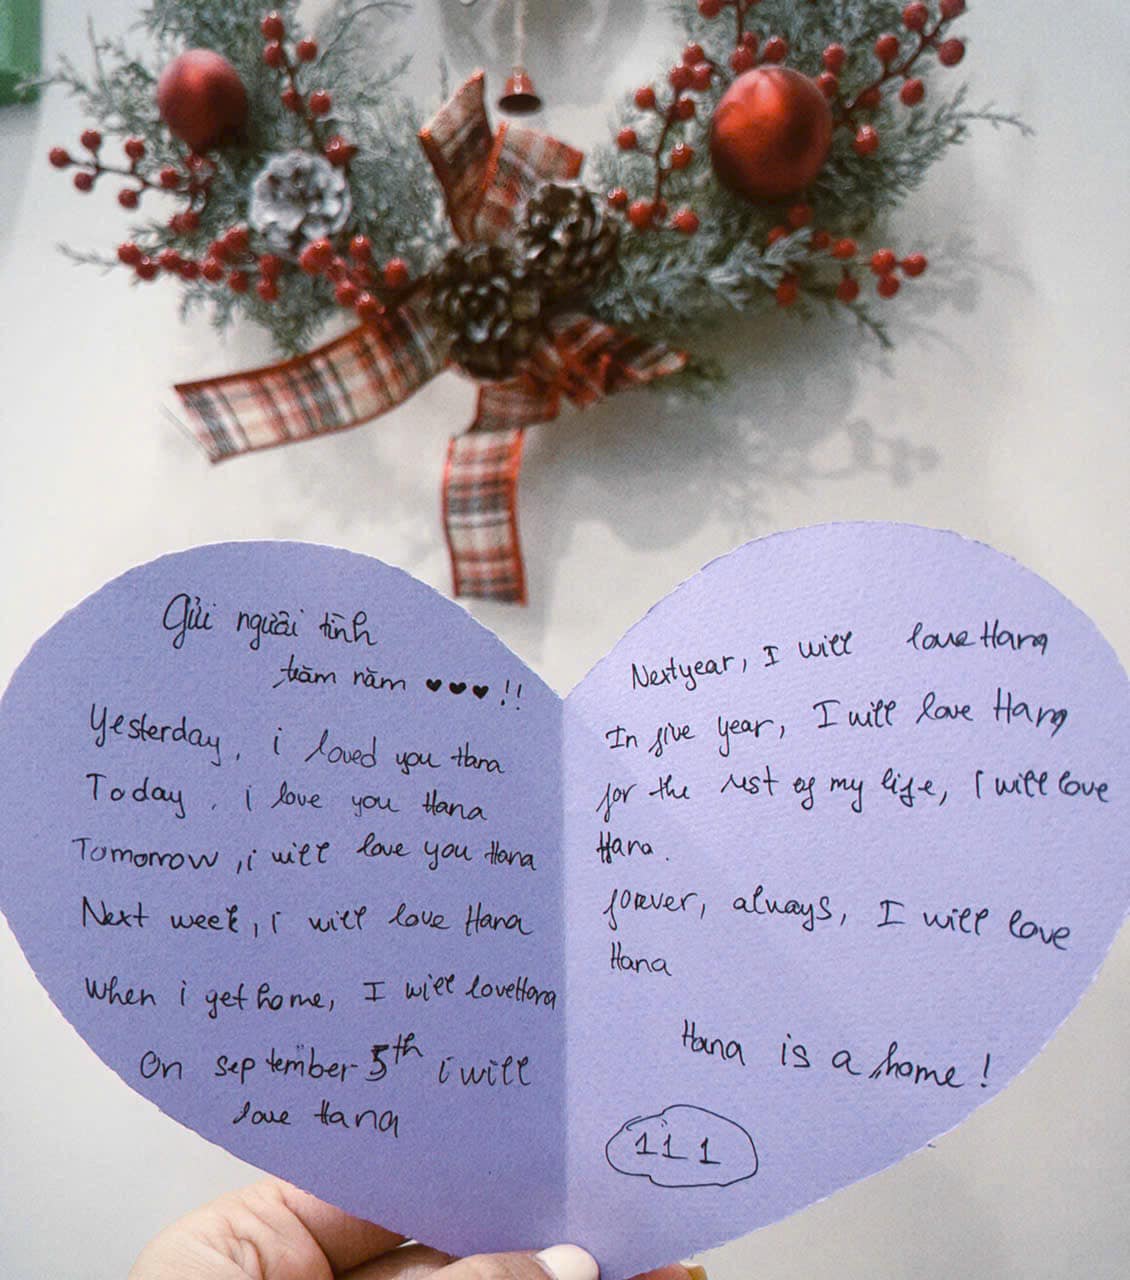 Gửi người tình
trăm năm ♥♥♥!!
Yesterday, i loved you Hana
Today, i love you Hana
Tomorrow, i will love you Hana
Next week, i will love Hana
When i get home, I will love Hana
On september 5th i will
love Hana
Next year, I will love Hana
In five year, I will love Hana
for the rest of my life, I will love
Hana.
forever, always, I will love
Hana
Hana is a home!
111